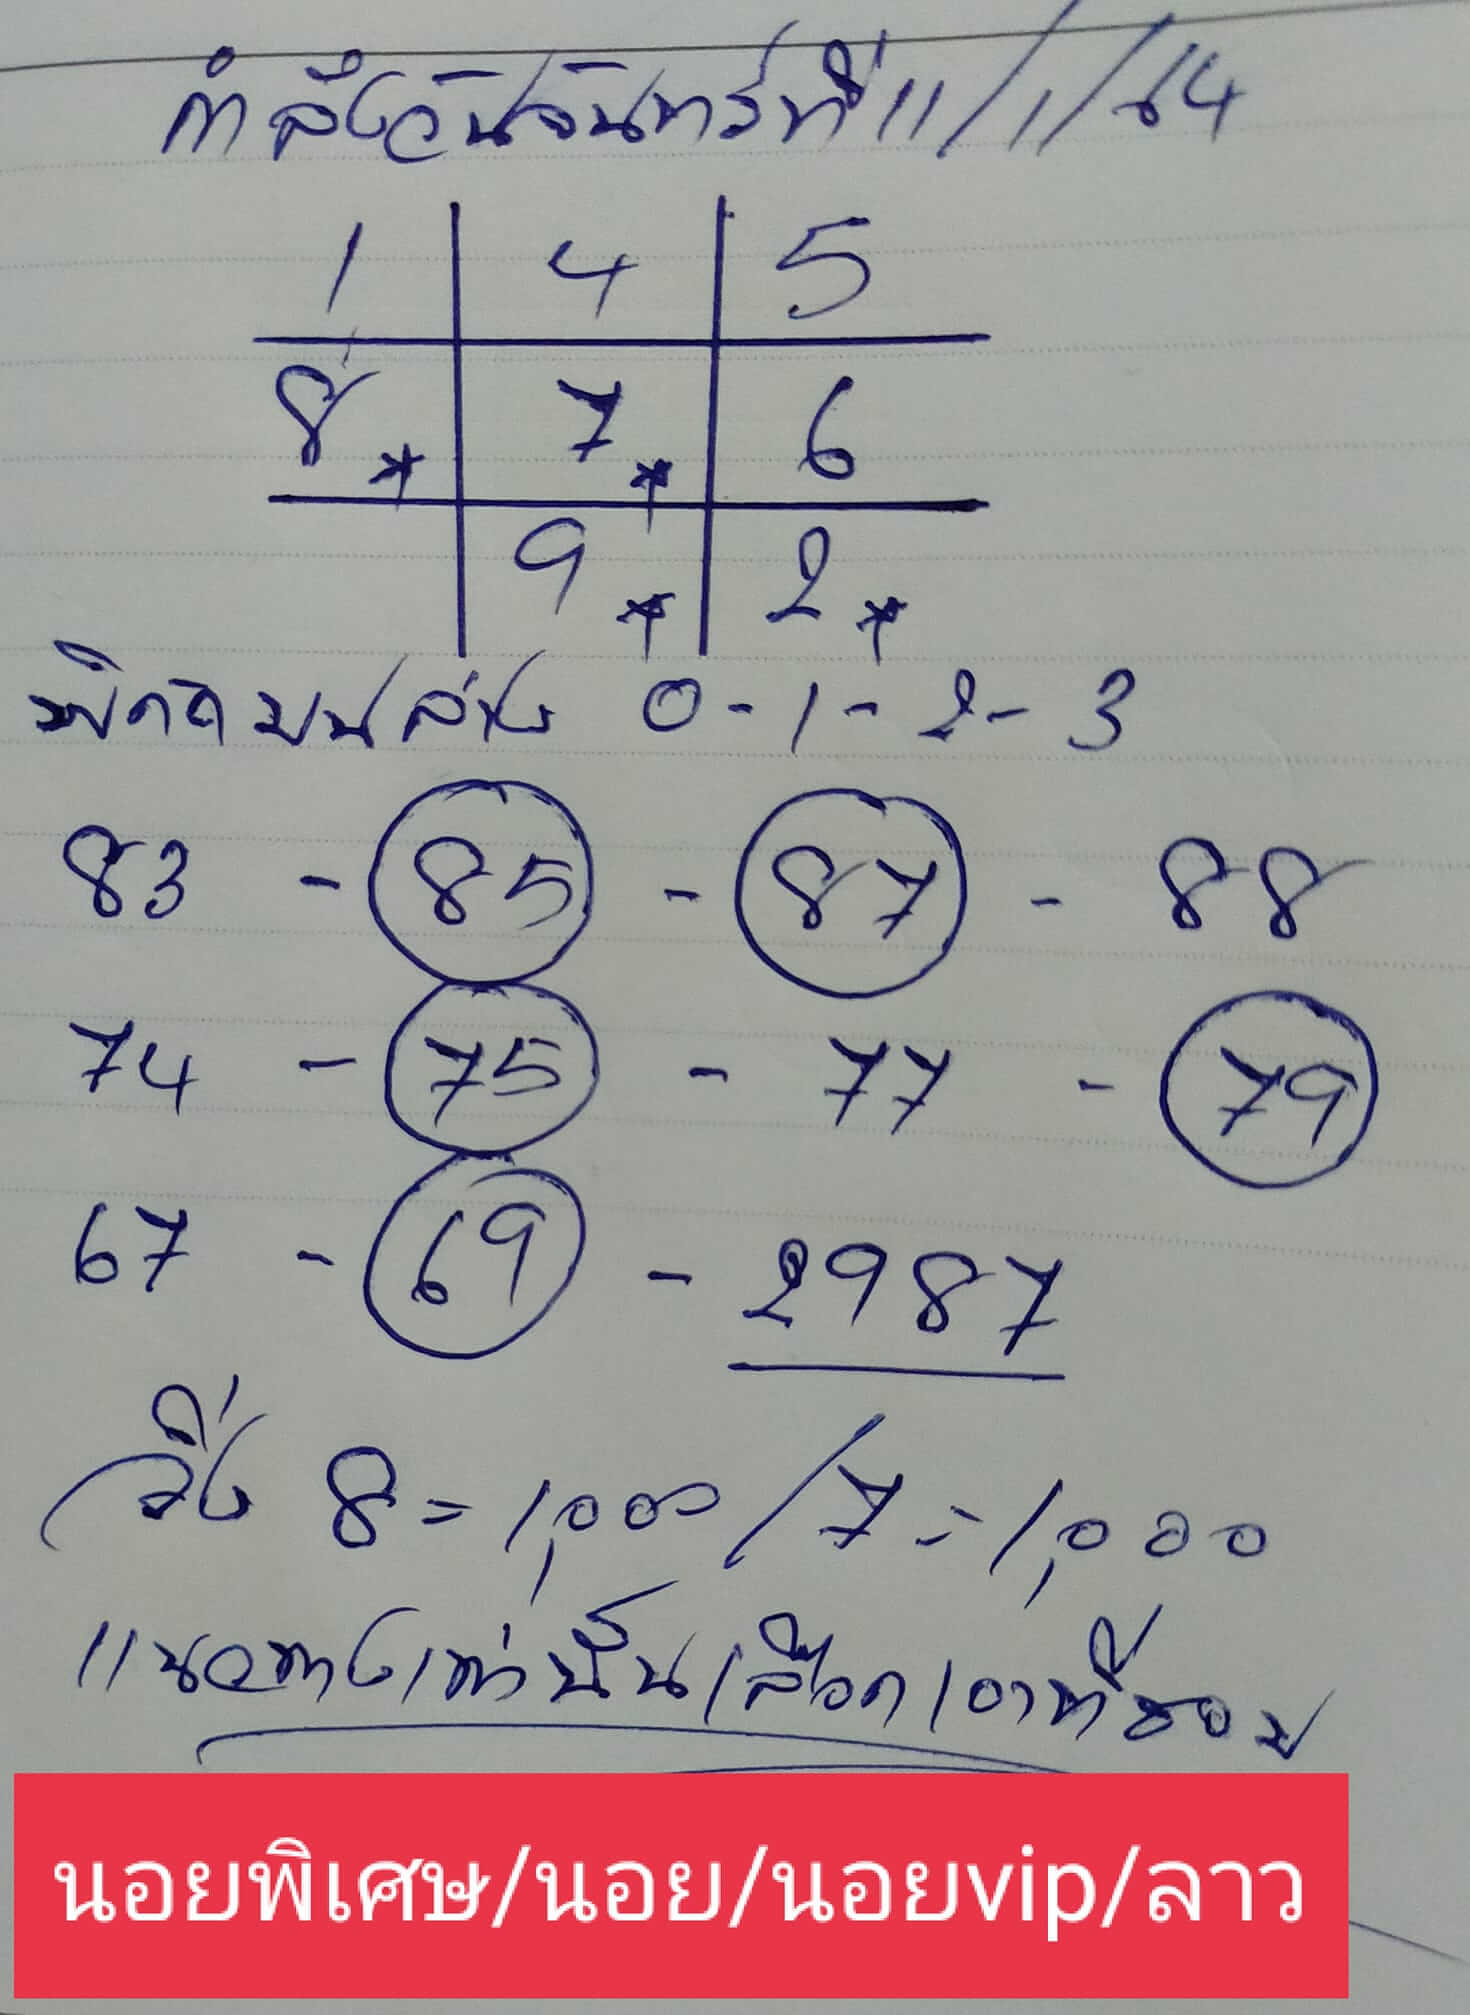 กำลังวันจันทร์ที่ 11/1/64
1 4 5
8* 7* 6
9* 2*
พิกัดบนล่าง 0-1-2-3
83 - 85 - 87 - 88
74 - 75 - 77 - 79
67 - 69 - 2987
วิ่ง 8=1,000/7=1,000
แนวทางเท่านั้นเลือกเอาที่ชอบ
นอยพิเศษ/นอย/นอยvip/ลาว